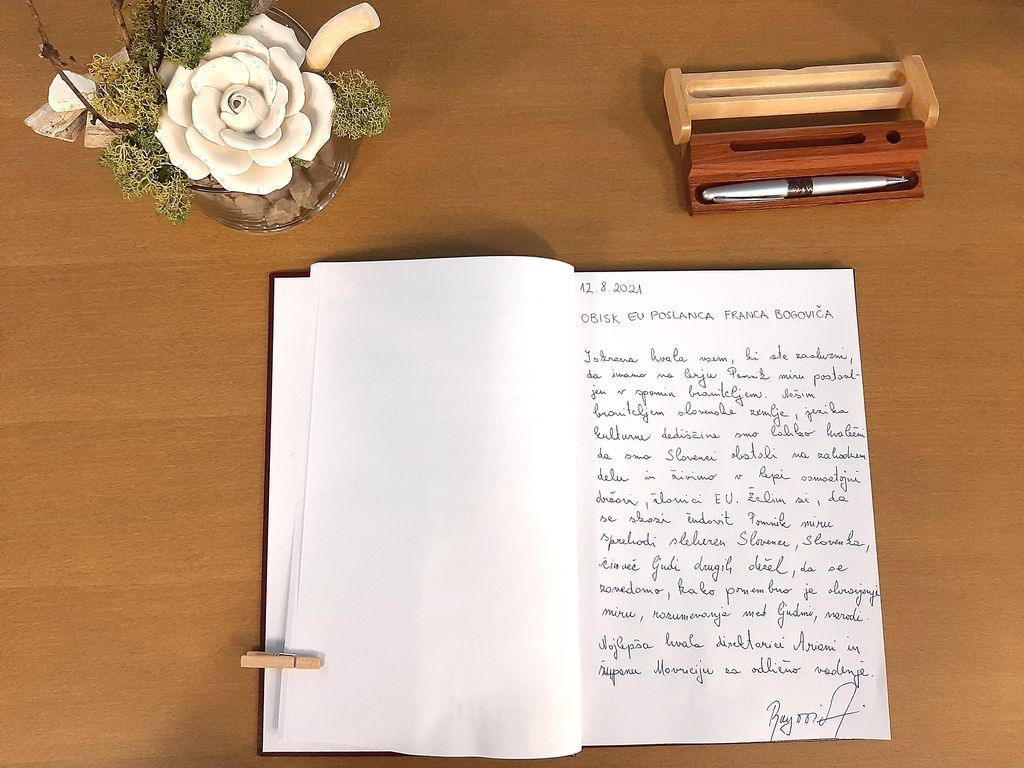 12.8.2021
OBISK EU POSLANCA FRANCA BOGOVIČA
Iskrena hvala vsem, ki ste zaslužni,
da imamo na Cerju Pomnik miru postavl-
jen v spomin braniteljem. Našim
braniteljem slovenske zemlje, jezika
kulturne dediščine smo lahko hvaležni
da smo Slovenci obstali na zahodnem
delu in živimo v lepi samostojni
državi, članici EU. Želim si, da
se skozi čudovit Pomnik miru
sprehodi sleheren Slovenec, Slovenka,
čimveč ljudi drugih dežel, da se
zavedamo, kako pomembno je ohranjanje
miru, razumevanje med ljudmi, narodi.
Najlepša hvala direktorici Ariani in
županu Mavriciju za odlično vodenje.